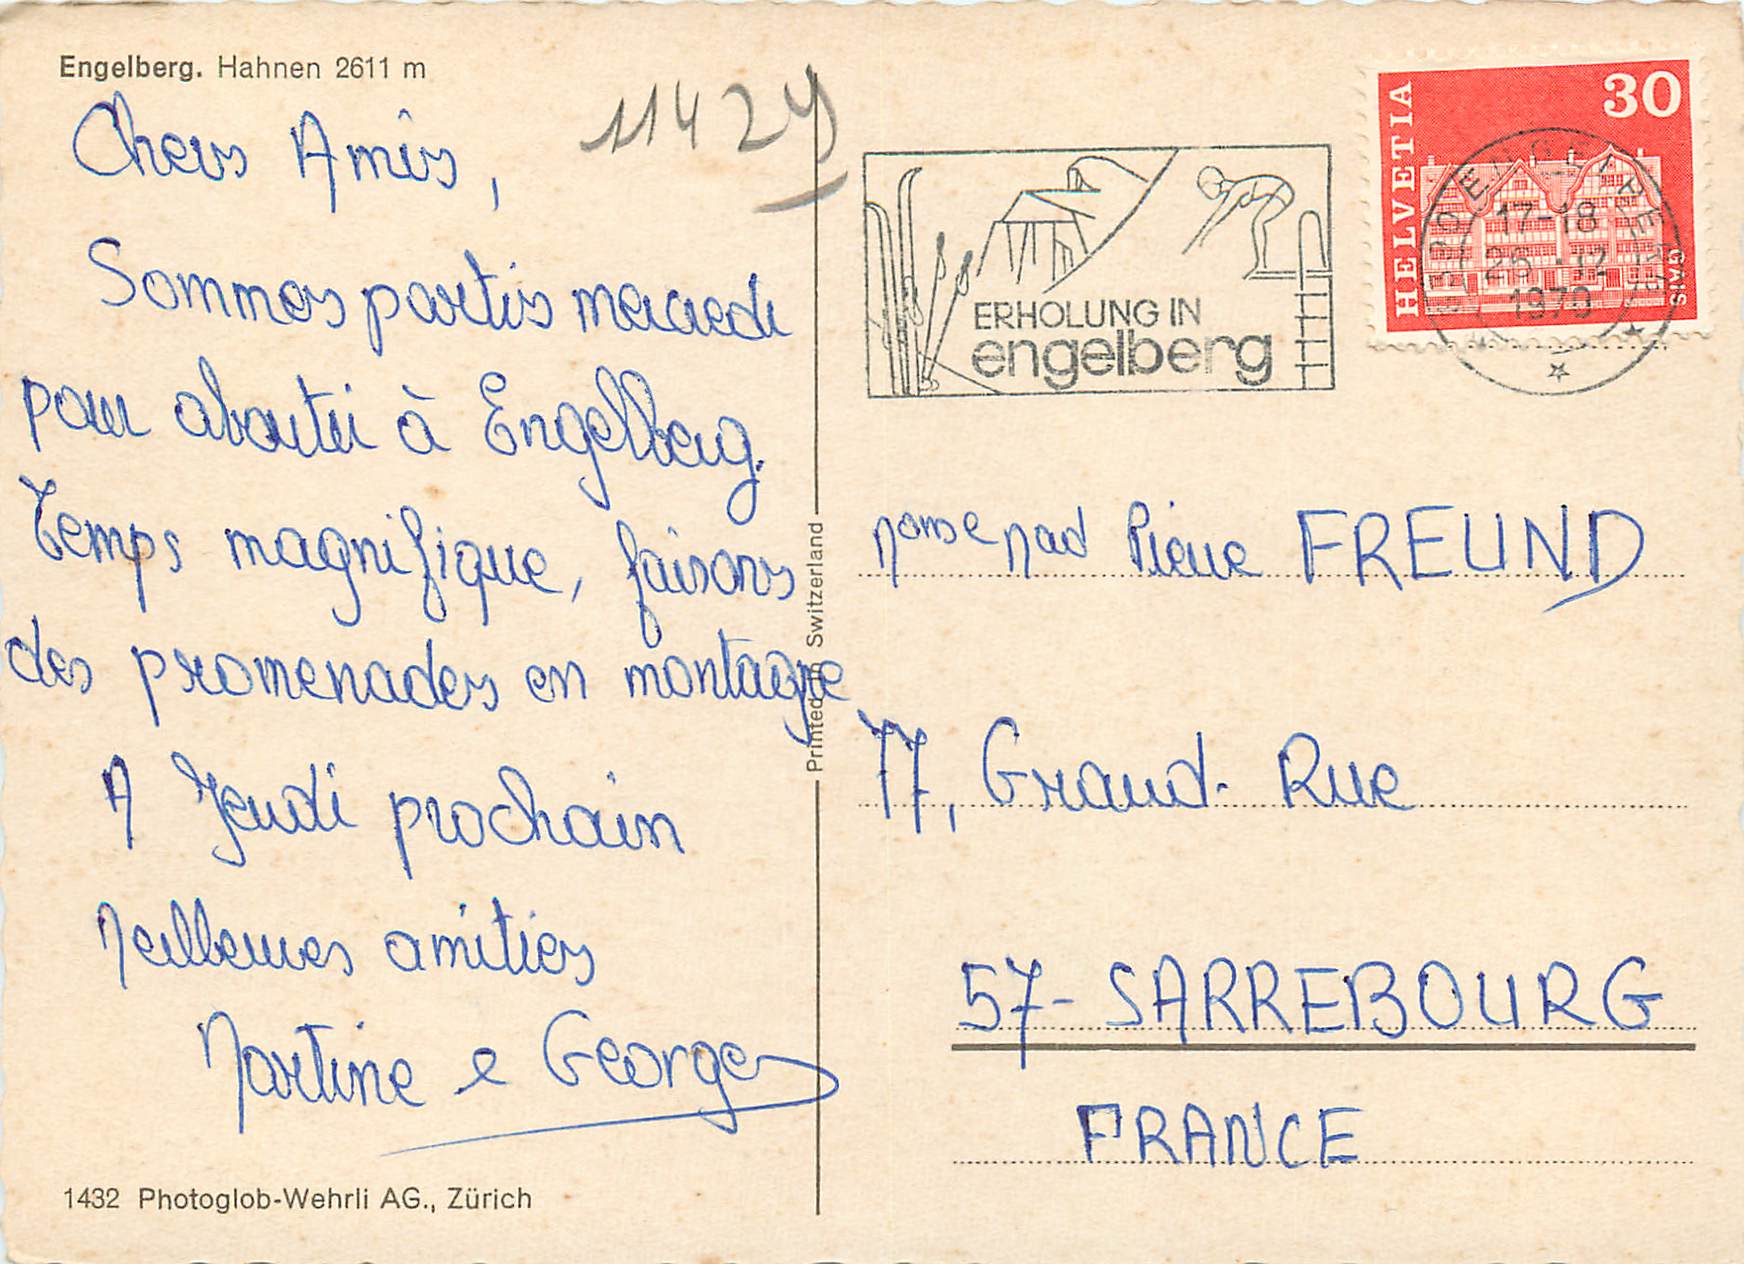 Engelberg. Hahnen 2611 m
11429
Chers Amis,
Sommes partis mercredi
pour aboutir à Engelberg.
Temps magnifique, faisons
des promenades en montagne
A Jeudi prochain
Meilleures amitiés
Martine e Georges
1432 Photoglob-Wehrli AG., Zürich
Printed in Switzerland
ERHOLUNG IN
engelberg
HELVETIA
30
GAIS
ENGELBERG
17-18
1970
Pierre FREUND
77, Grand-Rue
57-SARREBOURG
FRANCE